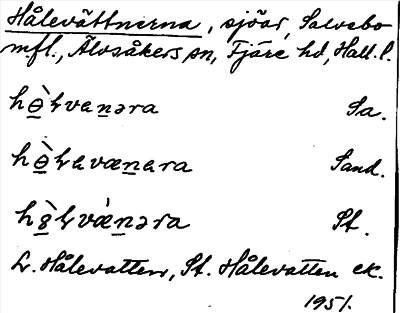 Hålevättnerna, sjöar, Salvebo
m.fl., Älvsåkers sn, Fjäre hd, Hall. l.
hɵ̀ɫvenəra Sa.
hɵ̀ɫevænera Sand.
h8̀ɫvǽnəra St.
L. Hålevatten, St. Hålevatten ek.
1951.